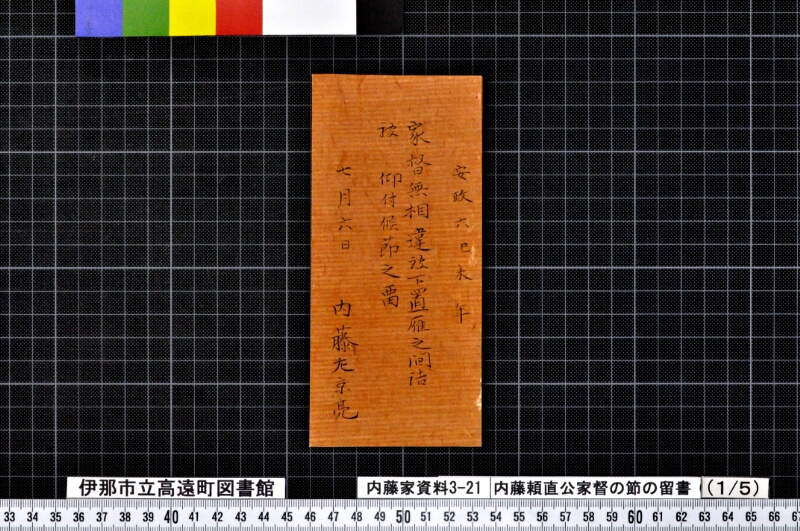 安政六己未年
家督無相違被下置雁之間詰
被 仰付候節之留
七月六日 内藤左京亮
伊那市立高遠町図書館
内藤家資料3-21
内藤頼直公家督の節の留書
(1/5)
33 34 35 36 37 38 39 40 41 42 43 44 45 46 47 48 49 50 51 52 53 54 55 56 57 58 59 60 61 62 63 64 65 66 67